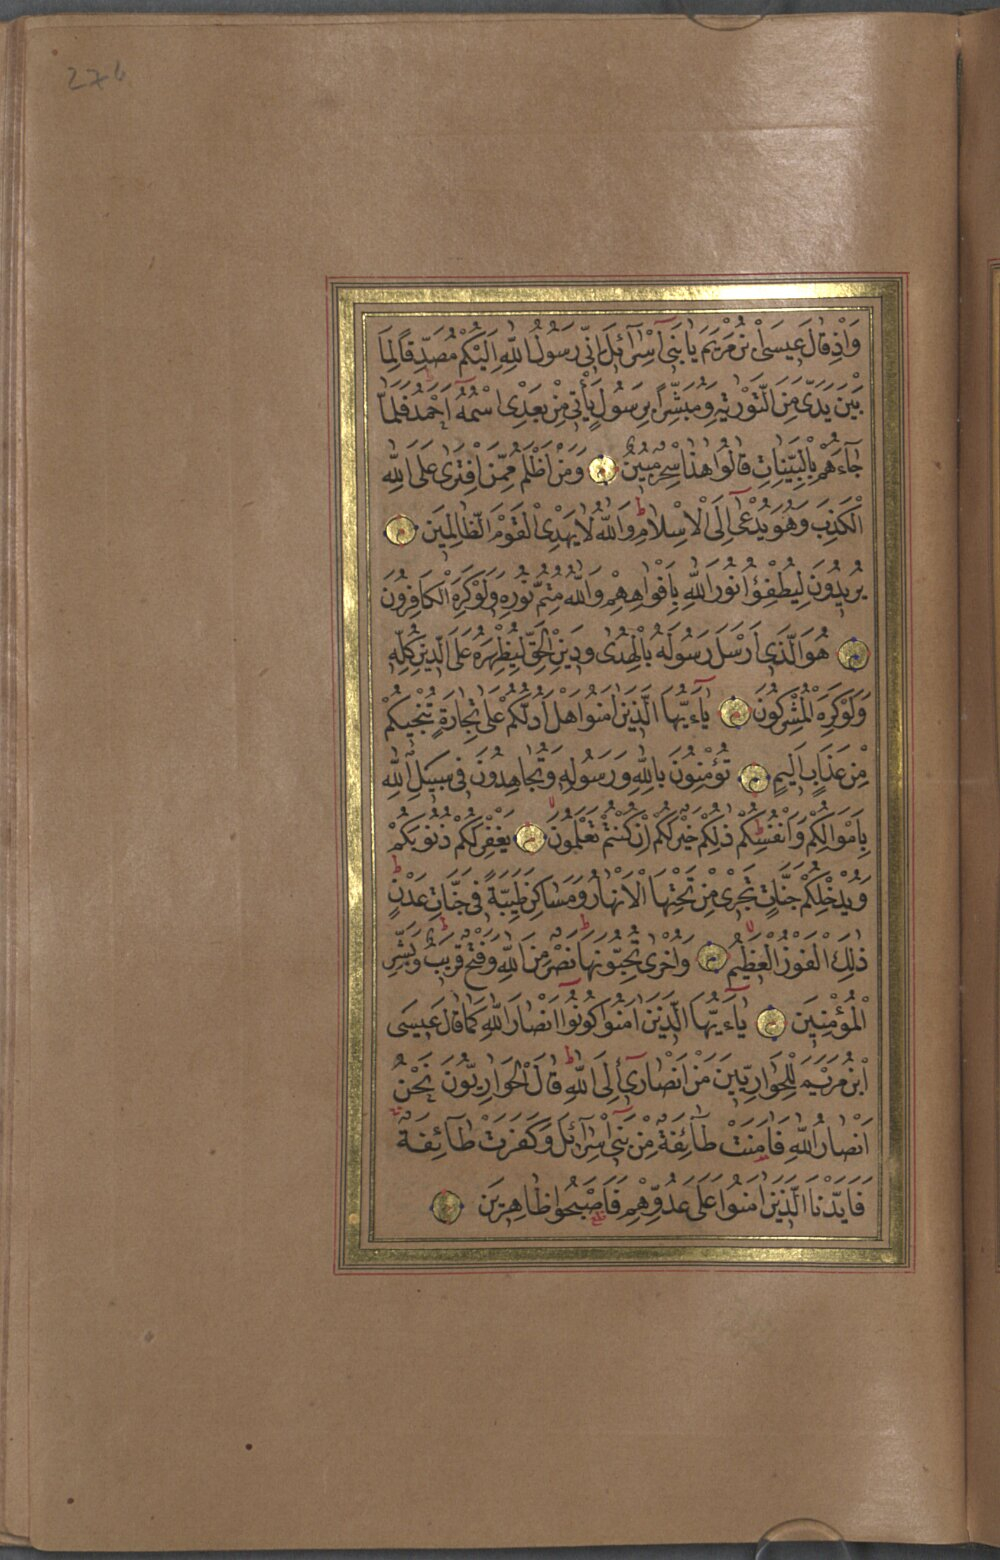 276
وَاِذْ قَالَ عِيسَى ابْنُ مَرْيَمَ يَا بَنِٓى اِسْرَٓائِلَ اِنِّى رَسُولُ اللّٰهِ اِلَيْكُمْ مُصَدِّقًا لِمَا
بَيْنَ يَدَىَّ مِنَ التَّوْرٰيةِ وَمُبَشِّرًا بِرَسُولٍ يَأْتِى مِنْ بَعْدِى اسْمُهُٓ اَحْمَدُ فَلَمَّا
جَآءَهُمْ بِالْبَيِّنَاتِ قَالُوا هٰذَا سِحْرٌ مُبِينٌ وَمَنْ اَظْلَمُ مِمَّنِ افْتَرٰى عَلَى اللّٰهِ
الْكَذِبَ وَهُوَ يُدْعٰٓى اِلَى الْاِسْلَامِ وَاللّٰهُ لَا يَهْدِى الْقَوْمَ الظَّالِمِينَ
يُرِيدُونَ لِيُطْفِؤُا نُورَ اللّٰهِ بِاَفْوَاهِهِمْ وَاللّٰهُ مُتِمُّ نُورِهِ وَلَوْ كَرِهَ الْكَافِرُونَ
هُوَ الَّذِى اَرْسَلَ رَسُولَهُ بِالْهُدٰى وَدِينِ الْحَقِّ لِيُظْهِرَهُ عَلَى الدِّينِ كُلِّهِ
وَلَوْ كَرِهَ الْمُشْرِكُونَ يَٓا ءَيُّهَا الَّذِينَ اٰمَنُوا هَلْ اَدُلُّكُمْ عَلٰى تِجَارَةٍ تُنْجِيكُمْ
مِنْ عَذَابٍ اَلِيمٍ تُؤْمِنُونَ بِاللّٰهِ وَرَسُولِهِ وَتُجَاهِدُونَ فِى سَبِيلِ اللّٰهِ
بِاَمْوَالِكُمْ وَاَنْفُسِكُمْ ذٰلِكُمْ خَيْرٌ لَكُمْ اِنْ كُنْتُمْ تَعْلَمُونَ يَغْفِرْ لَكُمْ ذُنُوبَكُمْ
وَيُدْخِلْكُمْ جَنَّاتٍ تَجْرِى مِنْ تَحْتِهَا الْاَنْهَارُ وَمَسَاكِنَ طَيِّبَةً فِى جَنَّاتِ عَدْنٍ
ذٰلِكَ الْفَوْزُ الْعَظِيمُ وَاُخْرٰى تُحِبُّونَهَا نَصْرٌ مِنَ اللّٰهِ وَفَتْحٌ قَرِيبٌ وَبَشِّرِ
الْمُؤْمِنِينَ يَٓا ءَيُّهَا الَّذِينَ اٰمَنُوا كُونُٓوا اَنْصَارَ اللّٰهِ كَمَا قَالَ عِيسَى
ابْنُ مَرْيَمَ لِلْحَوَارِيِّينَ مَنْ اَنْصَارِٓى اِلَى اللّٰهِ قَالَ الْحَوَارِيُّونَ نَحْنُ
اَنْصَارُ اللّٰهِ فَاٰمَنَتْ طَآئِفَةٌ مِنْ بَنِٓى اِسْرَٓائِلَ وَكَفَرَتْ طَآئِفَةٌ
فَاَيَّدْنَا الَّذِينَ اٰمَنُوا عَلٰى عَدُوِّهِمْ فَاَصْبَحُوا ظَاهِرِينَ